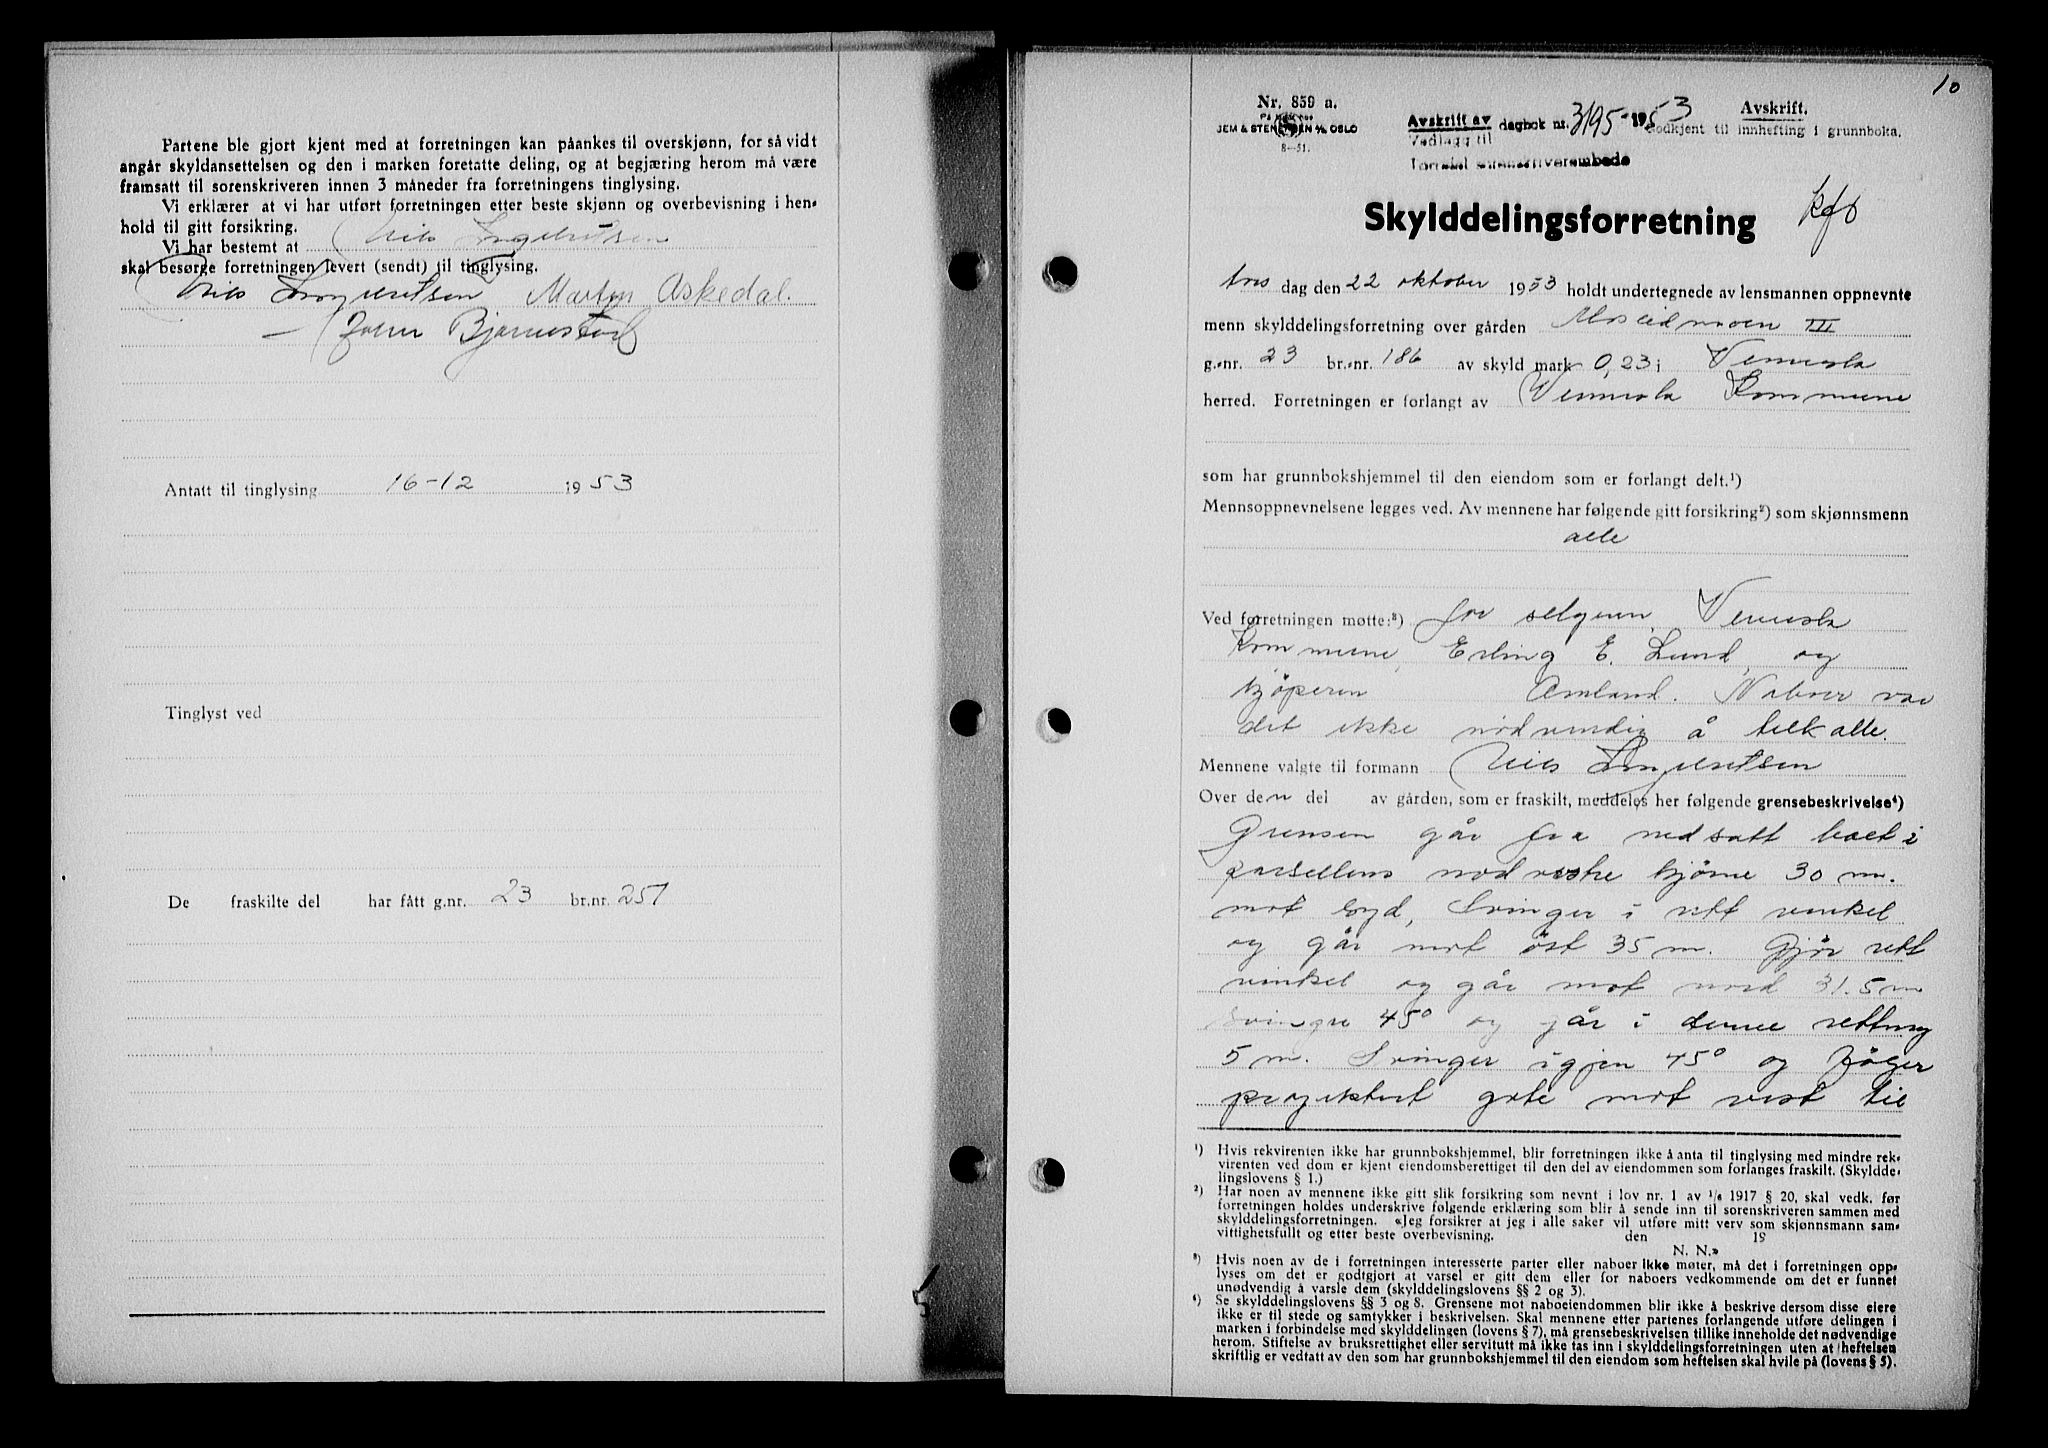 Partene ble gjort kjent med at forretningen kan påankes til overskjønn, for så vidt
angår skyldansettelsen og den i marken foretatte deling, og at begjæring herom må være
framsatt til sorenskriveren innen 3 måneder fra forretningens tinglysing.
Vi erklærer at vi har utført forretningen etter beste skjønn og overbevisning i hen-
hold til gitt forsikring.
Vi har bestemt at Nils Ingebretsen
skal besørge forretningen levert (sendt) til tinglysing.
Nils Ingebretsen Martin Askedal.
John Bjørnestad
Antatt til tinglysing 16-12 1953
Tinglyst ved
De fraskilte del har fått g.nr. 23 br.nr. 257
10
Nr. 859 a. Avskrift.
Avskrift av dagbok nr. 3195-1953
JEM & STENERSEN A/S OSLO godkjent til innhefting i grunnboka.
Vedlagg til
8—51.
Torridal sorenskriverembede
Skylddelingsforretning
tors dag den 22 oktober 1953 holdt undertegnede av lensmannen oppnevnte
menn skylddelingsforretning over gården Moseidmoen III
g.-nr. 23 br.-nr. 186 av skyld mark 0,23 i Vennesla
herred. Forretningen er forlangt av Vennesla Kommune
som har grunnbokshjemmel til den eiendom som er forlangt delt.¹)
Mennsoppnevnelsene legges ved. Av mennene har følgende gitt forsikring²) som skjønnsmenn
alle
Ved forretningen møtte:³) for selgeren, Vennesla
Kommune, Erling E. Lund, og
kjöperen Omland. Naboer var
det ikke nödvendig å tilkalle.
Mennene valgte til formann Nils Ingebretsen
Over den del av gården, som er fraskilt, meddeles her følgende grensebeskrivelse⁴)
Grensen går fra nedsatt bolt i
parsellens nordvestre hjörne 30 m.
mot syd, Svinger i rett vinkel
og går mot öst 35 m. Gjör rett
vinkel og går mot nord 31.5 m
svinger 45° og går i denne retning
5 m. Svinger igjen 45° og fölger
projektert gate mot vest til
¹) Hvis rekvirenten ikke har grunnbokshjemmel, blir forretningen ikke å anta til tinglysing med mindre rek-
virenten ved dom er kjent eiendomsberettiget til den del av eiendommen som forlanges fraskilt. (Skyldde-
lingslovens § 1.)
²) Har noen av mennene ikke gitt slik forsikring som nevnt i lov nr. 1 av 1/6 1917 § 20, skal vedk. før
forretningen holdes underskrive følgende erklæring som blir å sende inn til sorenskriveren sammen med
skylddelingsforretningen. «Jeg forsikrer at jeg i alle saker vil utføre mitt verv som skjønnsmann sam-
vittighetsfullt og etter beste overbevisning. den 19
N. N.»
³) Hvis noen av de i forretningen interesserte parter eller naboer ikke møter, må det i forretningen opp-
lyses om det er godtgjort at varsel er gitt dem eller for naboers vedkommende om det er funnet
unødvendig å varsle dem (skylddelingslovens §§ 2 og 3).
⁴) Se skylddelingslovens §§ 3 og 8. Grensene mot naboeiendommen blir ikke å beskrive dersom disse eiere
ikke er til stede og samtykker i beskrivelsen. Skal mennene etter partenes forlangende utføre delingen i
marken i forbindelse med skylddelingen (lovens § 7), må grensebeskrivelsen tillike inneholde det nødvendige
herom. Stiftelse av bruksrettighet eller servitutt må ikke tas inn i skylddelingsforretningen uten at heftelsen
skriftlig er vedtatt av den som har grunnbokshjemmel til den eiendom som heftelsen skal hvile på (lovens § 5).